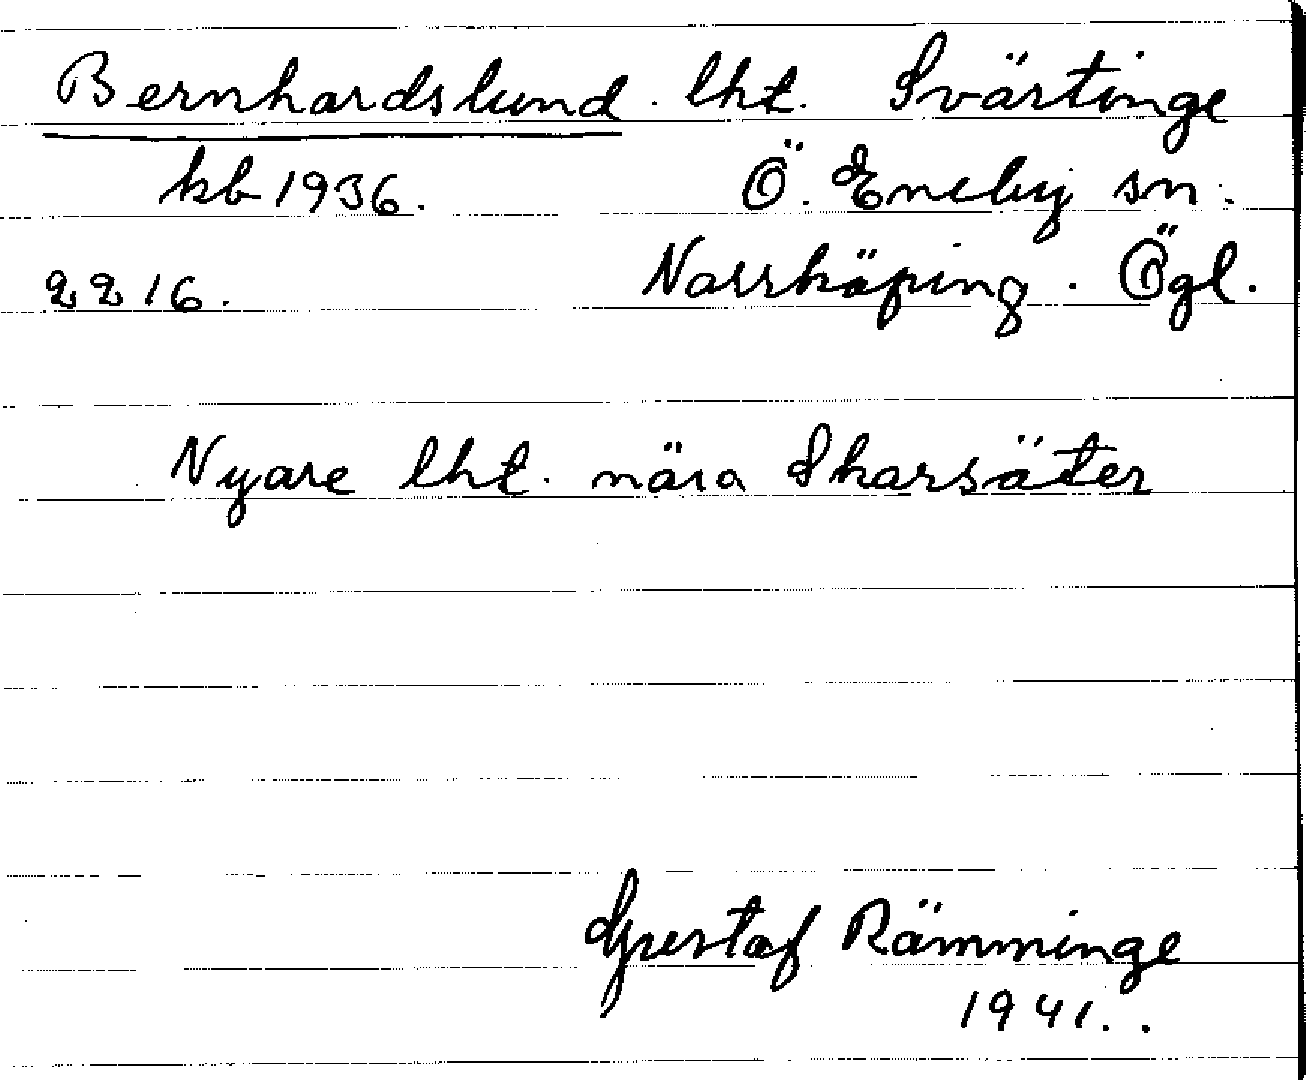 Bernhardslund. lht. Svärtinge
kb 1936. Ö. Eneby sn.
2216. Norrköping. Ögl.
Nyare lht. nära Skarsäter
Gustaf Rämminge
1941.